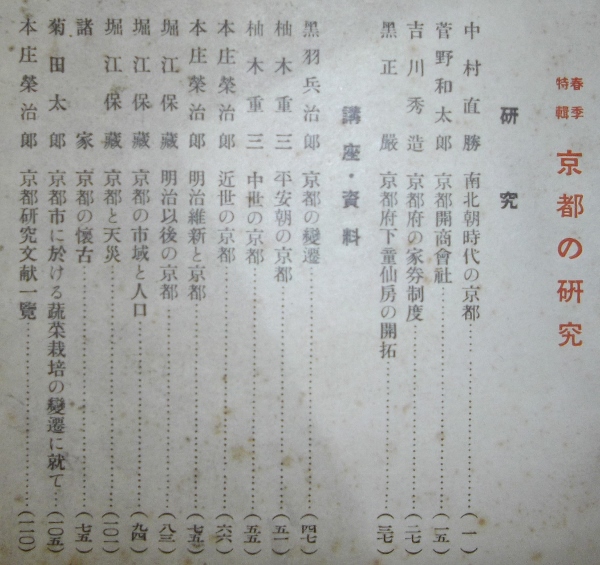 春季特輯 京都の研究
研究
中村直勝 南北朝時代の京都……(一)
菅野和太郎 京都開商會社……(一五)
吉川秀造 京都府の家券制度……(二七)
黒正巖 京都府下童仙房の開拓……(三七)
講座・資料
黑羽兵治郎 京都の變遷……(四七)
柚木重三 平安朝の京都……(五一)
柚木重三 中世の京都……(五五)
本庄榮治郎 近世の京都……(六六)
本庄榮治郎 明治維新と京都……(七五)
堀江保藏 明治以後の京都……(八三)
堀江保藏 京都の市域と人口……(九四)
堀江保藏 京都と天災……(一〇一)
諸家 京都の懷古……(七五)
菊田太郎 京都市に於ける蔬菜栽培の變遷に就て……(一〇五)
本庄榮治郎 京都研究文献一覽……(一一〇)